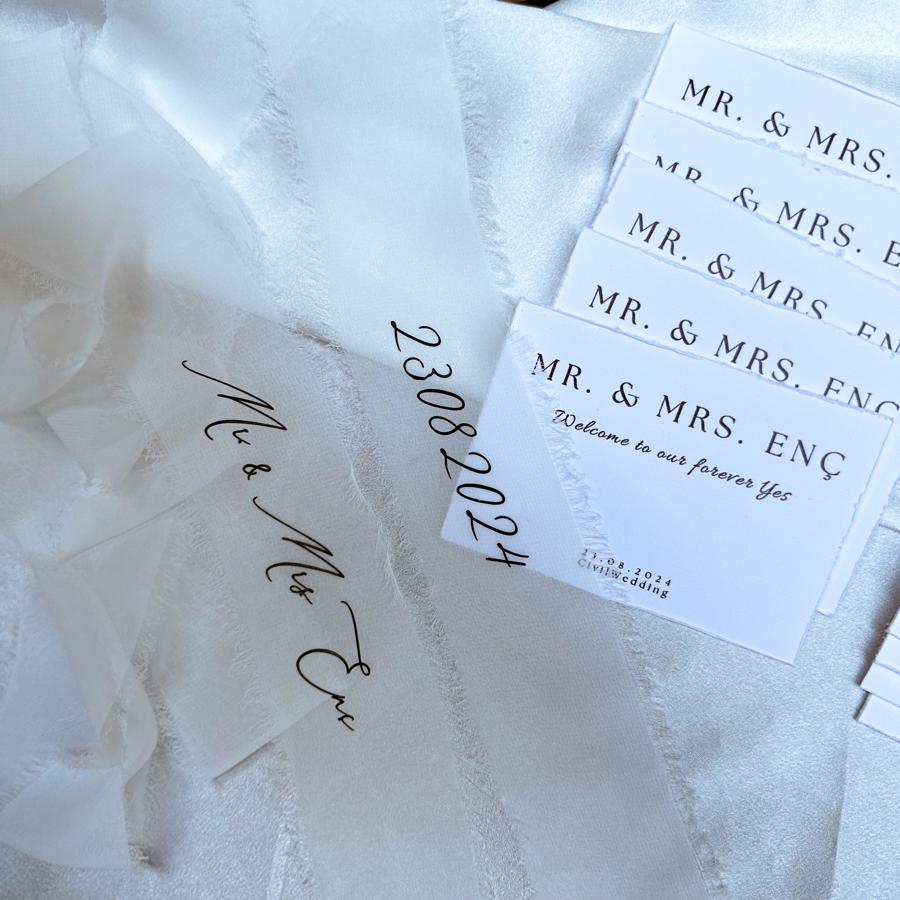 MR. & MRS.
MR. & MRS. E
MR. & MRS. EN
MR. & MRS. ENÇ
MR. & MRS. ENÇ
Welcome to our forever Yes
23.08.2024
Civilwedding
23082024
Mr & Mrs Enç